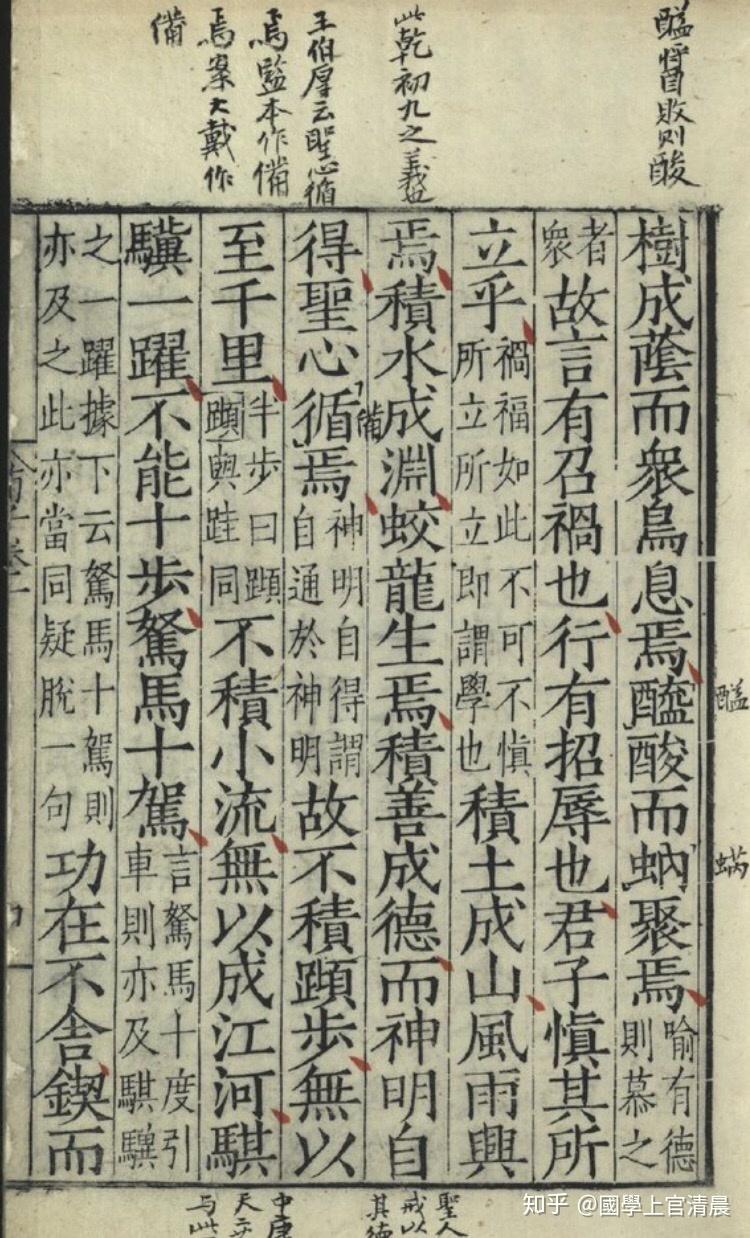 醯醬敗則酸
此乾初九之義也
王伯厚云聖心循
焉監本作備
焉案大戴作
備
樹成蔭而衆鳥息焉醯酸而蜹聚焉喻有德則慕之
者衆故言有召禍也行有招辱也君子慎其所
立乎禍福如此不可不慎所立所立即謂學也積土成山風雨興
焉積水成淵蛟龍生焉積善成德而神明自
得聖心循焉神明自得謂自通於神明故不積蹞步無以
備
至千里半步曰蹞蹞與跬同不積小流無以成江河騏
驥一躍不能十步駑馬十駕言駑馬十度引車則亦及騏驥
之一躍據下云駑馬十駕則亦及之此亦當同疑脫一句功在不舍鍥而
醯
蜹
聖人
戒以
其德
中庸
天
与此
知乎 @國學上官清晨